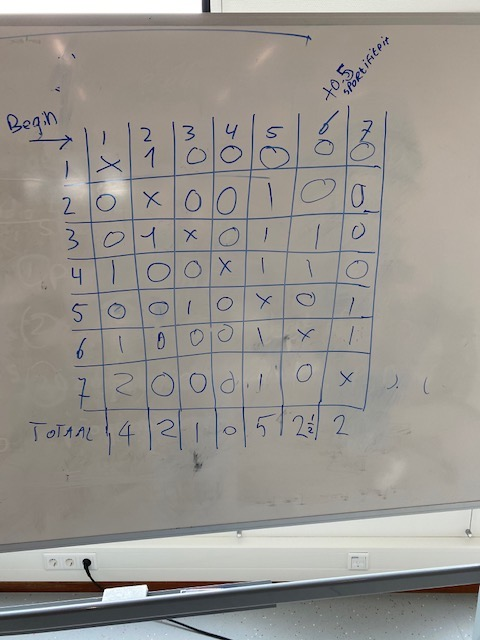 +0.5
sportifiteit
Begin
1 2 3 4 5 6 7
1 x 1 0 0 0 0 0
2 0 x 0 0 1 0 0
3 0 1 x 0 1 1 0
4 1 0 0 x 1 1 0
5 0 0 1 0 x 0 1
6 1 0 0 0 1 x 1
7 2 0 0 0 1 0 x
TOTAAL 4 2 1 0 5 2½ 2